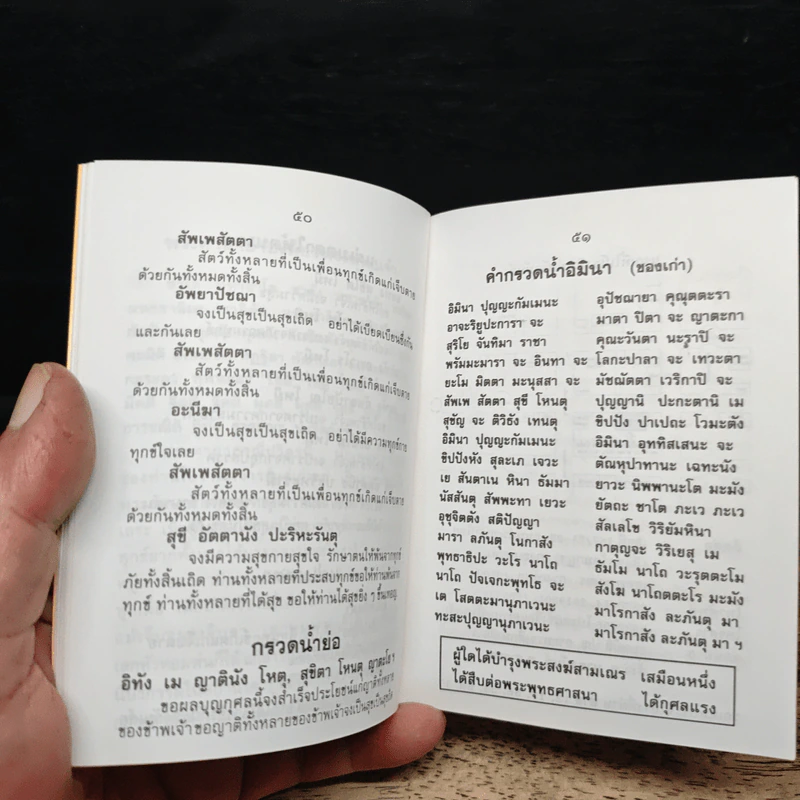 ๕๐
สัพเพสัตตา
สัตว์ทั้งหลายที่เป็นเพื่อนทุกข์เกิดแก่เจ็บตาย
ด้วยกันทั้งหมดทั้งสิ้น
อัพยาปัชฌา
จงเป็นสุขเป็นสุขเถิด อย่าได้เบียดเบียนซึ่งกัน
และกันเลย
สัพเพสัตตา
สัตว์ทั้งหลายที่เป็นเพื่อนทุกข์เกิดแก่เจ็บตาย
ด้วยกันทั้งหมดทั้งสิ้น
อะนีฆา
จงเป็นสุขเป็นสุขเถิด อย่าได้มีความทุกข์กาย
ทุกข์ใจเลย
สัพเพสัตตา
สัตว์ทั้งหลายที่เป็นเพื่อนทุกข์เกิดแก่เจ็บตาย
ด้วยกันทั้งหมดทั้งสิ้น
สุขี อัตตานัง ปะริหะรันตุ
จงมีความสุขกายสุขใจ รักษาตนให้พ้นจากทุกข์
ภัยทั้งสิ้นเถิด ท่านทั้งหลายที่ประสบทุกข์ขอให้ท่านพ้นจาก
ทุกข์ ท่านทั้งหลายที่ได้สุข ขอให้ท่านได้สุขยิ่ง ๆ ขึ้นเทอญ
กรวดน้ำย่อ
อิทัง เม ญาตินัง โหตุ, สุขิตา โหนตุ ญาตะโย ฯ
ขอผลบุญกุศลนี้จงสำเร็จประโยชน์แก่ญาติทั้งหลาย
ของข้าพเจ้า ขอญาติทั้งหลายของข้าพเจ้าจงเป็นสุขเป็นสุขเถิด
๕๑
คำกรวดน้ำอิมินา (ของเก่า)
อิมินา ปุญญะกัมเมนะ อุปัชฌายา คุณุตตะรา
อาจะริยูปะการา จะ มาตา ปิตา จะ ญาตะกา
สุริโย จันทิมา ราชา คุณะวันตา นะราปิ จะ
พรัมมะมารา จะ อินทา จะ โลกะปาลา จะ เทวะตา
ยะโม มิตตา มะนุสสา จะ มัชฌัตตา เวริกาปิ จะ
สัพเพ สัตตา สุขี โหนตุ ปุญญานิ ปะกะตานิ เม
สุขัญ จะ ติวิธัง เทนตุ ขิปปัง ปาเปถะ โวมะตัง
อิมินา ปุญญะกัมเมนะ อิมินา อุททิสเสนะ จะ
ขิปปังหัง สุละเภ เจวะ ตัณหุปาทานะ เฉทะนัง
เย สันตาเน หินา ธัมมา ยาวะ นิพพานะโต มะมัง
นัสสันตุ สัพพะทา เยวะ ยัตถะ ชาโต ภะเว ภะเว
อุชุจิตตัง สติปัญญา สัลเลโข วิริยัมหินา
มารา ลภันตุ โนกาสัง กาตุญจะ วิริเยสุ เม
พุทธาธิปะ วะโร นาโถ ธัมโม นาโถ วะรุตตะโม
นาโถ ปัจเจกะพุทโธ จะ สังโฆ นาโถตตะโร มะมัง
เต โสตตะมานุภาเวนะ มาโรกาสัง ละภันตุ มา
ทะสะปุญญานุภาเวนะ มาโรกาสัง ละภันตุ มา ฯ
ผู้ใดได้บำรุงพระสงฆ์สามเณร เสมือนหนึ่ง
ได้สืบต่อพระพุทธศาสนา ได้กุศลแรง